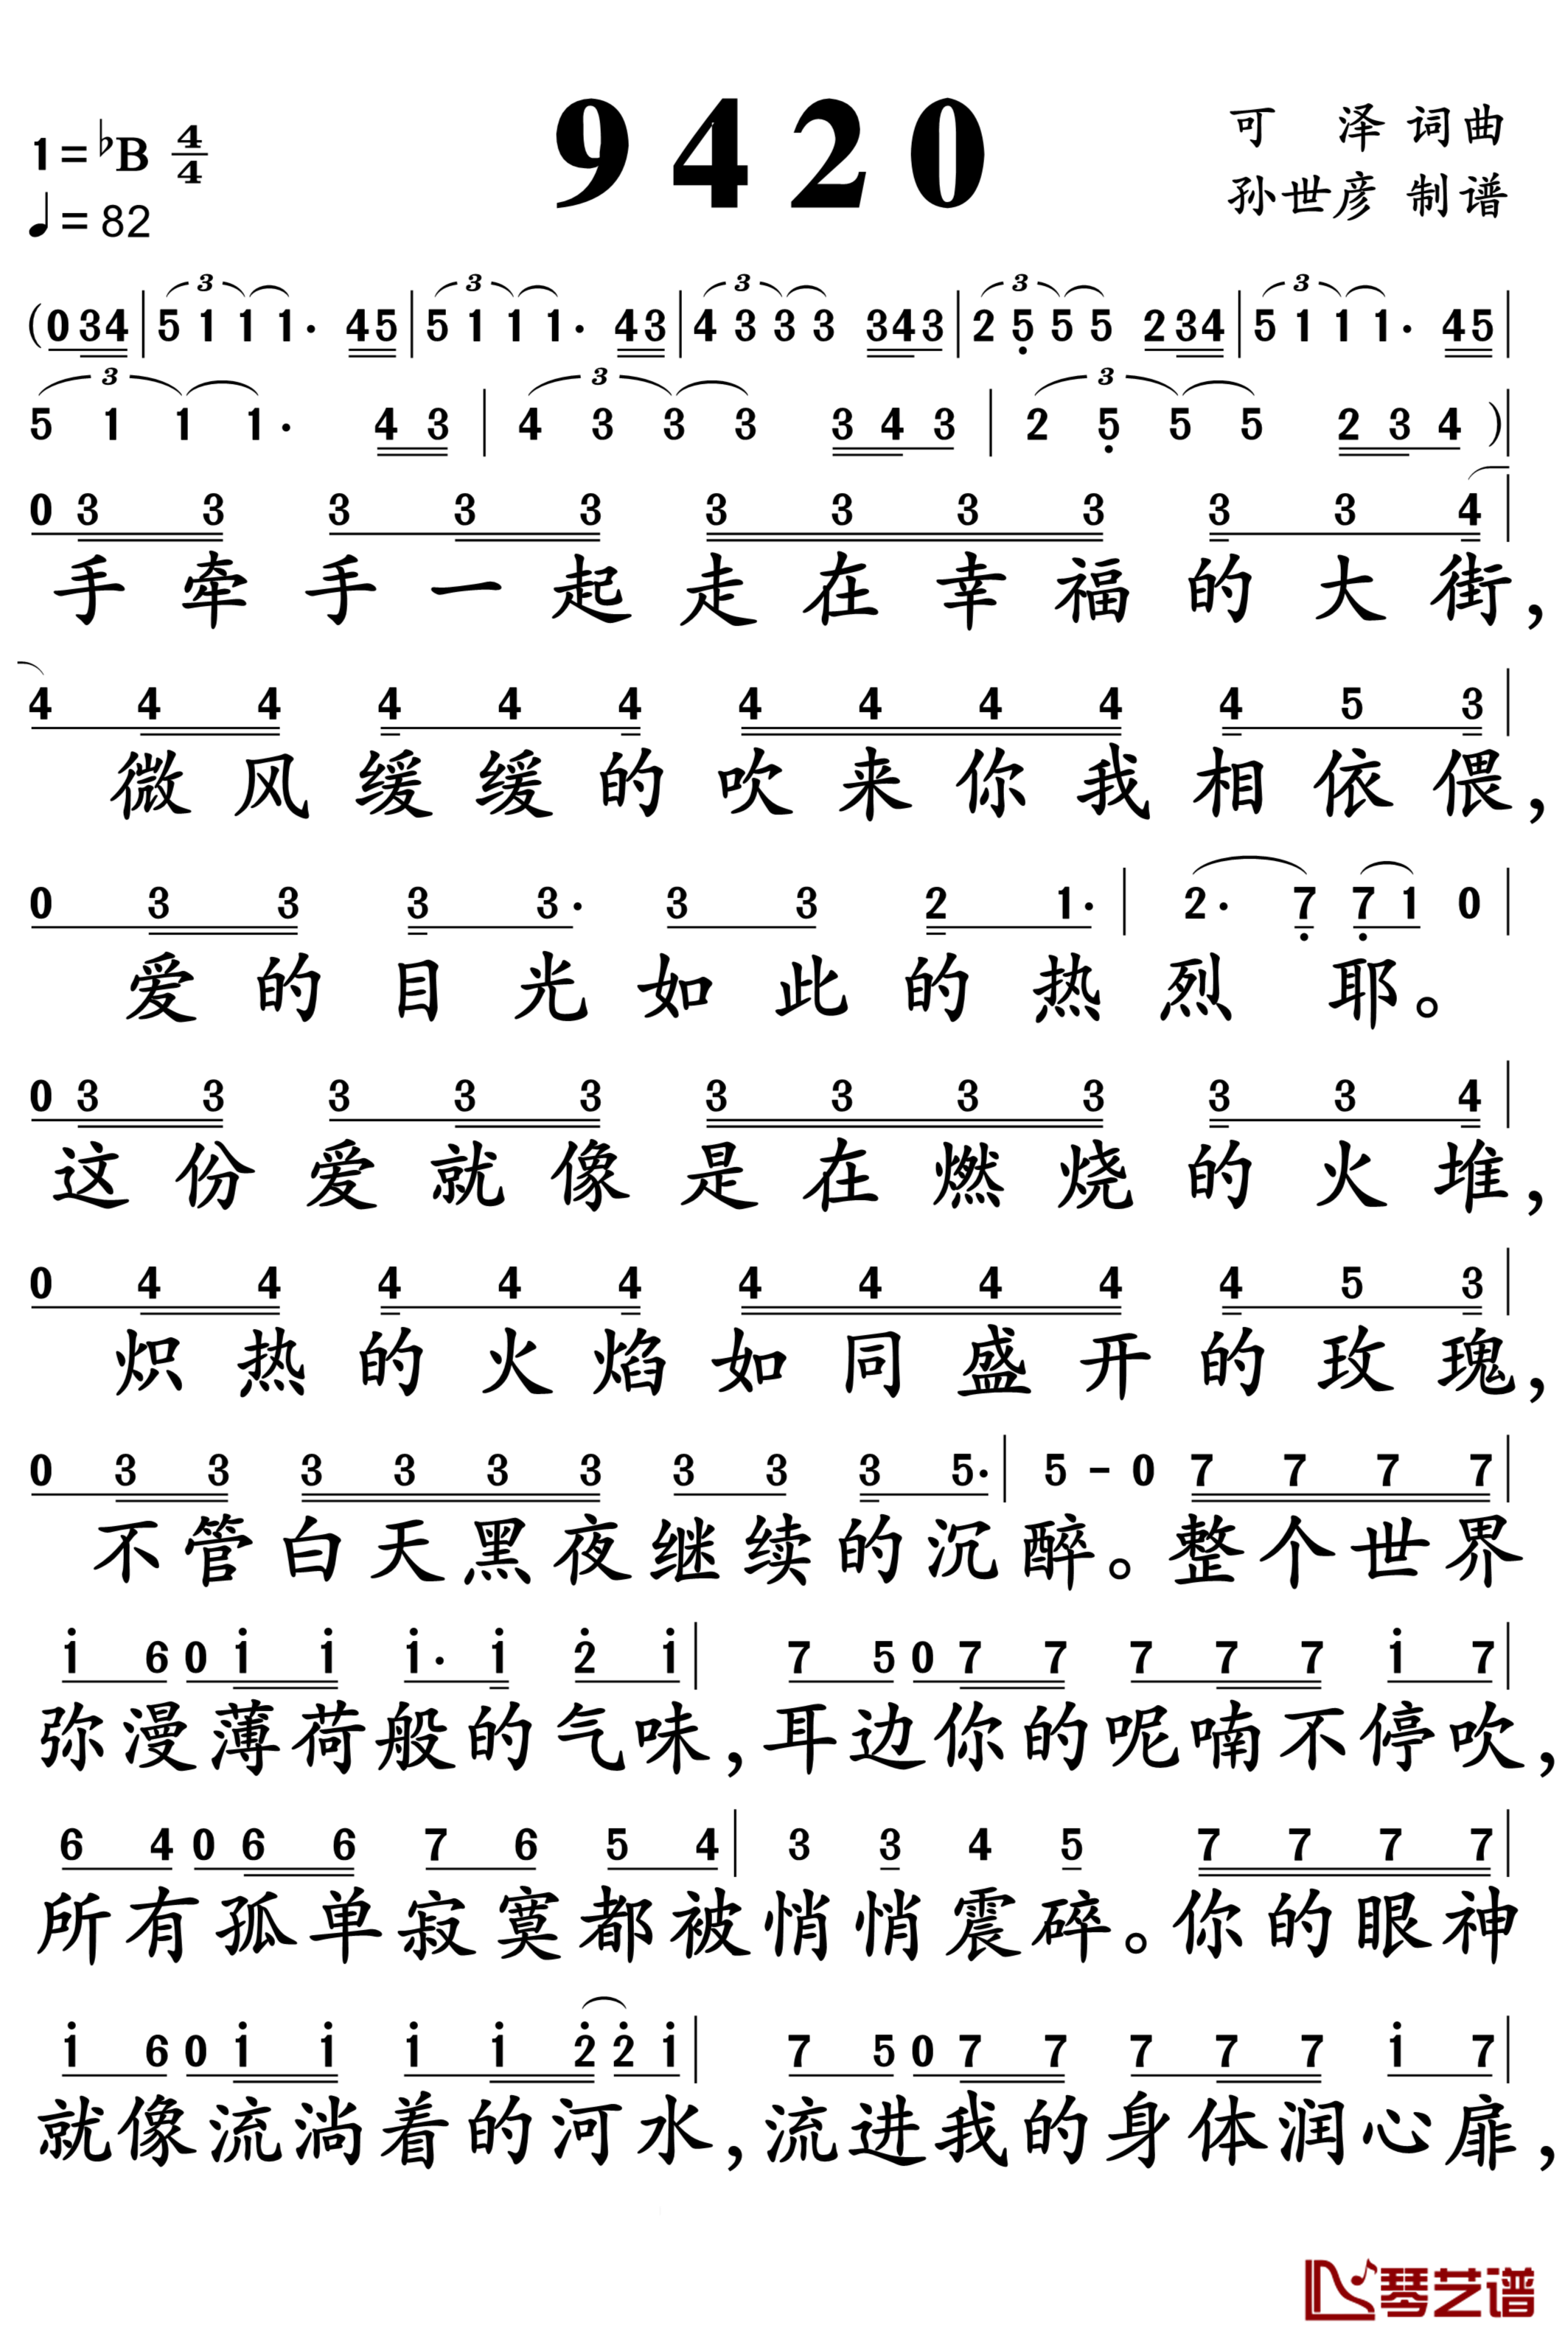 9420
可 泽 词曲
1=♭B 4/4
孙世彦 制谱
♩=82
(0 3 4 | 5 1 1 1· 4 5 | 5 1 1 1· 4 3 | 4 3 3 3 3 4 3 | 2 5̣ 5 5 2 3 4 | 5 1 1 1· 4 5 |
5 1 1 1· 4 3 | 4 3 3 3 3 4 3 | 2 5̣ 5 5 2 3 4 )|
0 3 3 3 3 3 3 3 3 3 3 3 4 |
手牵手一起走在幸福的大街,
4 4 4 4 4 4 4 4 4 4 4 5 3 |
微风缓缓的吹来你我相依偎,
0 3 3 3 3· 3 3 2 1· | 2· 7̣ 7̣ 1 0 |
爱的目光如此的热烈 耶。
0 3 3 3 3 3 3 3 3 3 3 3 4 |
这份爱就像是在燃烧的火堆,
0 4 4 4 4 4 4 4 4 4 4 5 3 |
炽热的火焰如同盛开的玫瑰,
0 3 3 3 3 3 3 3 3 3 5· | 5 - 0 7 7 7 7 |
不管白天黑夜继续的沉醉。整个世界
1̇ 6 0 1̇ 1̇ 1̇· 1̇ 2̇ 1̇ | 7 5 0 7 7 7 7 7 1̇ 7 |
弥漫薄荷般的气味,耳边你的呢喃不停吹,
6 4 0 6 6 7 6 5 4 | 3 3 4 5 7 7 7 7 |
所有孤单寂寞都被悄悄震碎。你的眼神
1̇ 6 0 1̇ 1̇ 1̇ 1̇ 2̇ 2̇ 1̇ | 7 5 0 7 7 7 7 7 1̇ 7 |
就像流淌着的河水,流进我的身体润心扉,
琴艺谱